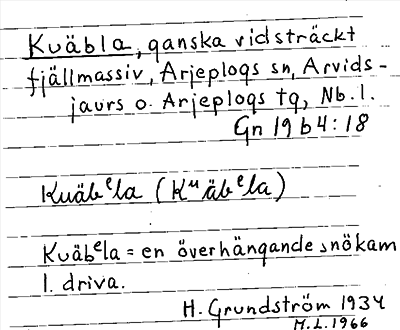 Kuäbla, ganska vidsträckt
fjällmassiv, Arjeplogs sn, Arvids-
jaurs o. Arjeplogs tg, Nb. l.
Gn 1964:18
Kuäbᵉla (Kᵘäbᵉla)
Kuäbᵉla = en överhängande snökam
l. driva.
H. Grundström 1934
M.L. 1966